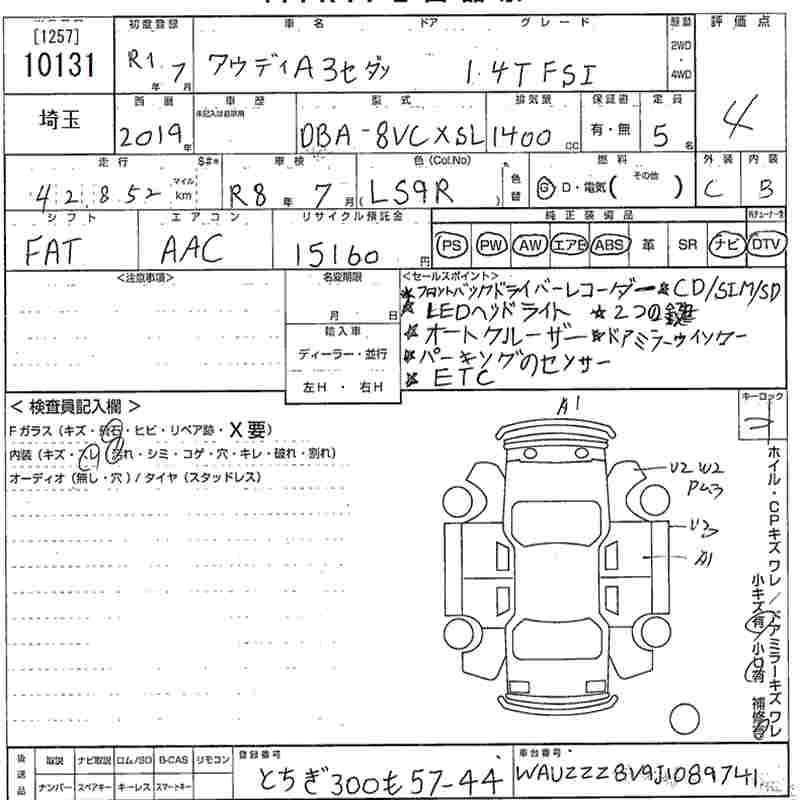 [1257]
10131
初度登録 車名 ドア グレード 駆動 評価点
R1年7月 アウディA3セダン 1.4TFSI 2WD・4WD 4
埼玉
西暦 車歴 型式 排気量 保証書 定員
2019年 未記入は自家用 DBA-8VCXSL 1400cc 有・無 5名
走行 S#* 車検 色(Col.No) 色替 燃料 外装 内装
42852 マイル km R8年7月 (LS9R) Ⓖ・D・電気(その他) C B
シフト エアコン リサイクル預託金 純正装備品
FAT AAC 15160円 PS PW AW エアB ABS 革 SR ナビ DTV
<注意事項> 名変期限 <セールスポイント>
月 日
輸入車
ディーラー・並行
左H・右H
★フロントバックドライバーレコーダー★CD/SIM/SD
★LEDヘッドライト ★2つの鍵
★オートクルーザー★ドアミラーウインカー
★パーキングのセンサー
★ETC
<検査員記入欄> キーロック
Fガラス(キズ・飛石・ヒビ・リペア跡・X要)
内装(キズ・スレ・汚れ・シミ・コゲ・穴・キレ・破れ・割れ)
オーディオ(無し・穴)/タイヤ(スタッドレス)
A1
U2 W2
U3
A1
ホイル・CPキズ ワレ/ドアミラーキズ ワレ
小キズ有/小凹有 補修有
後送品 取説 ナビ取説 ロム/SD B-CAS リモコン
ナンバー スペアキー キーレス スマートキー
登録番号
とちぎ300も57-44
車台番号
WAUZZZ8V9J1089741